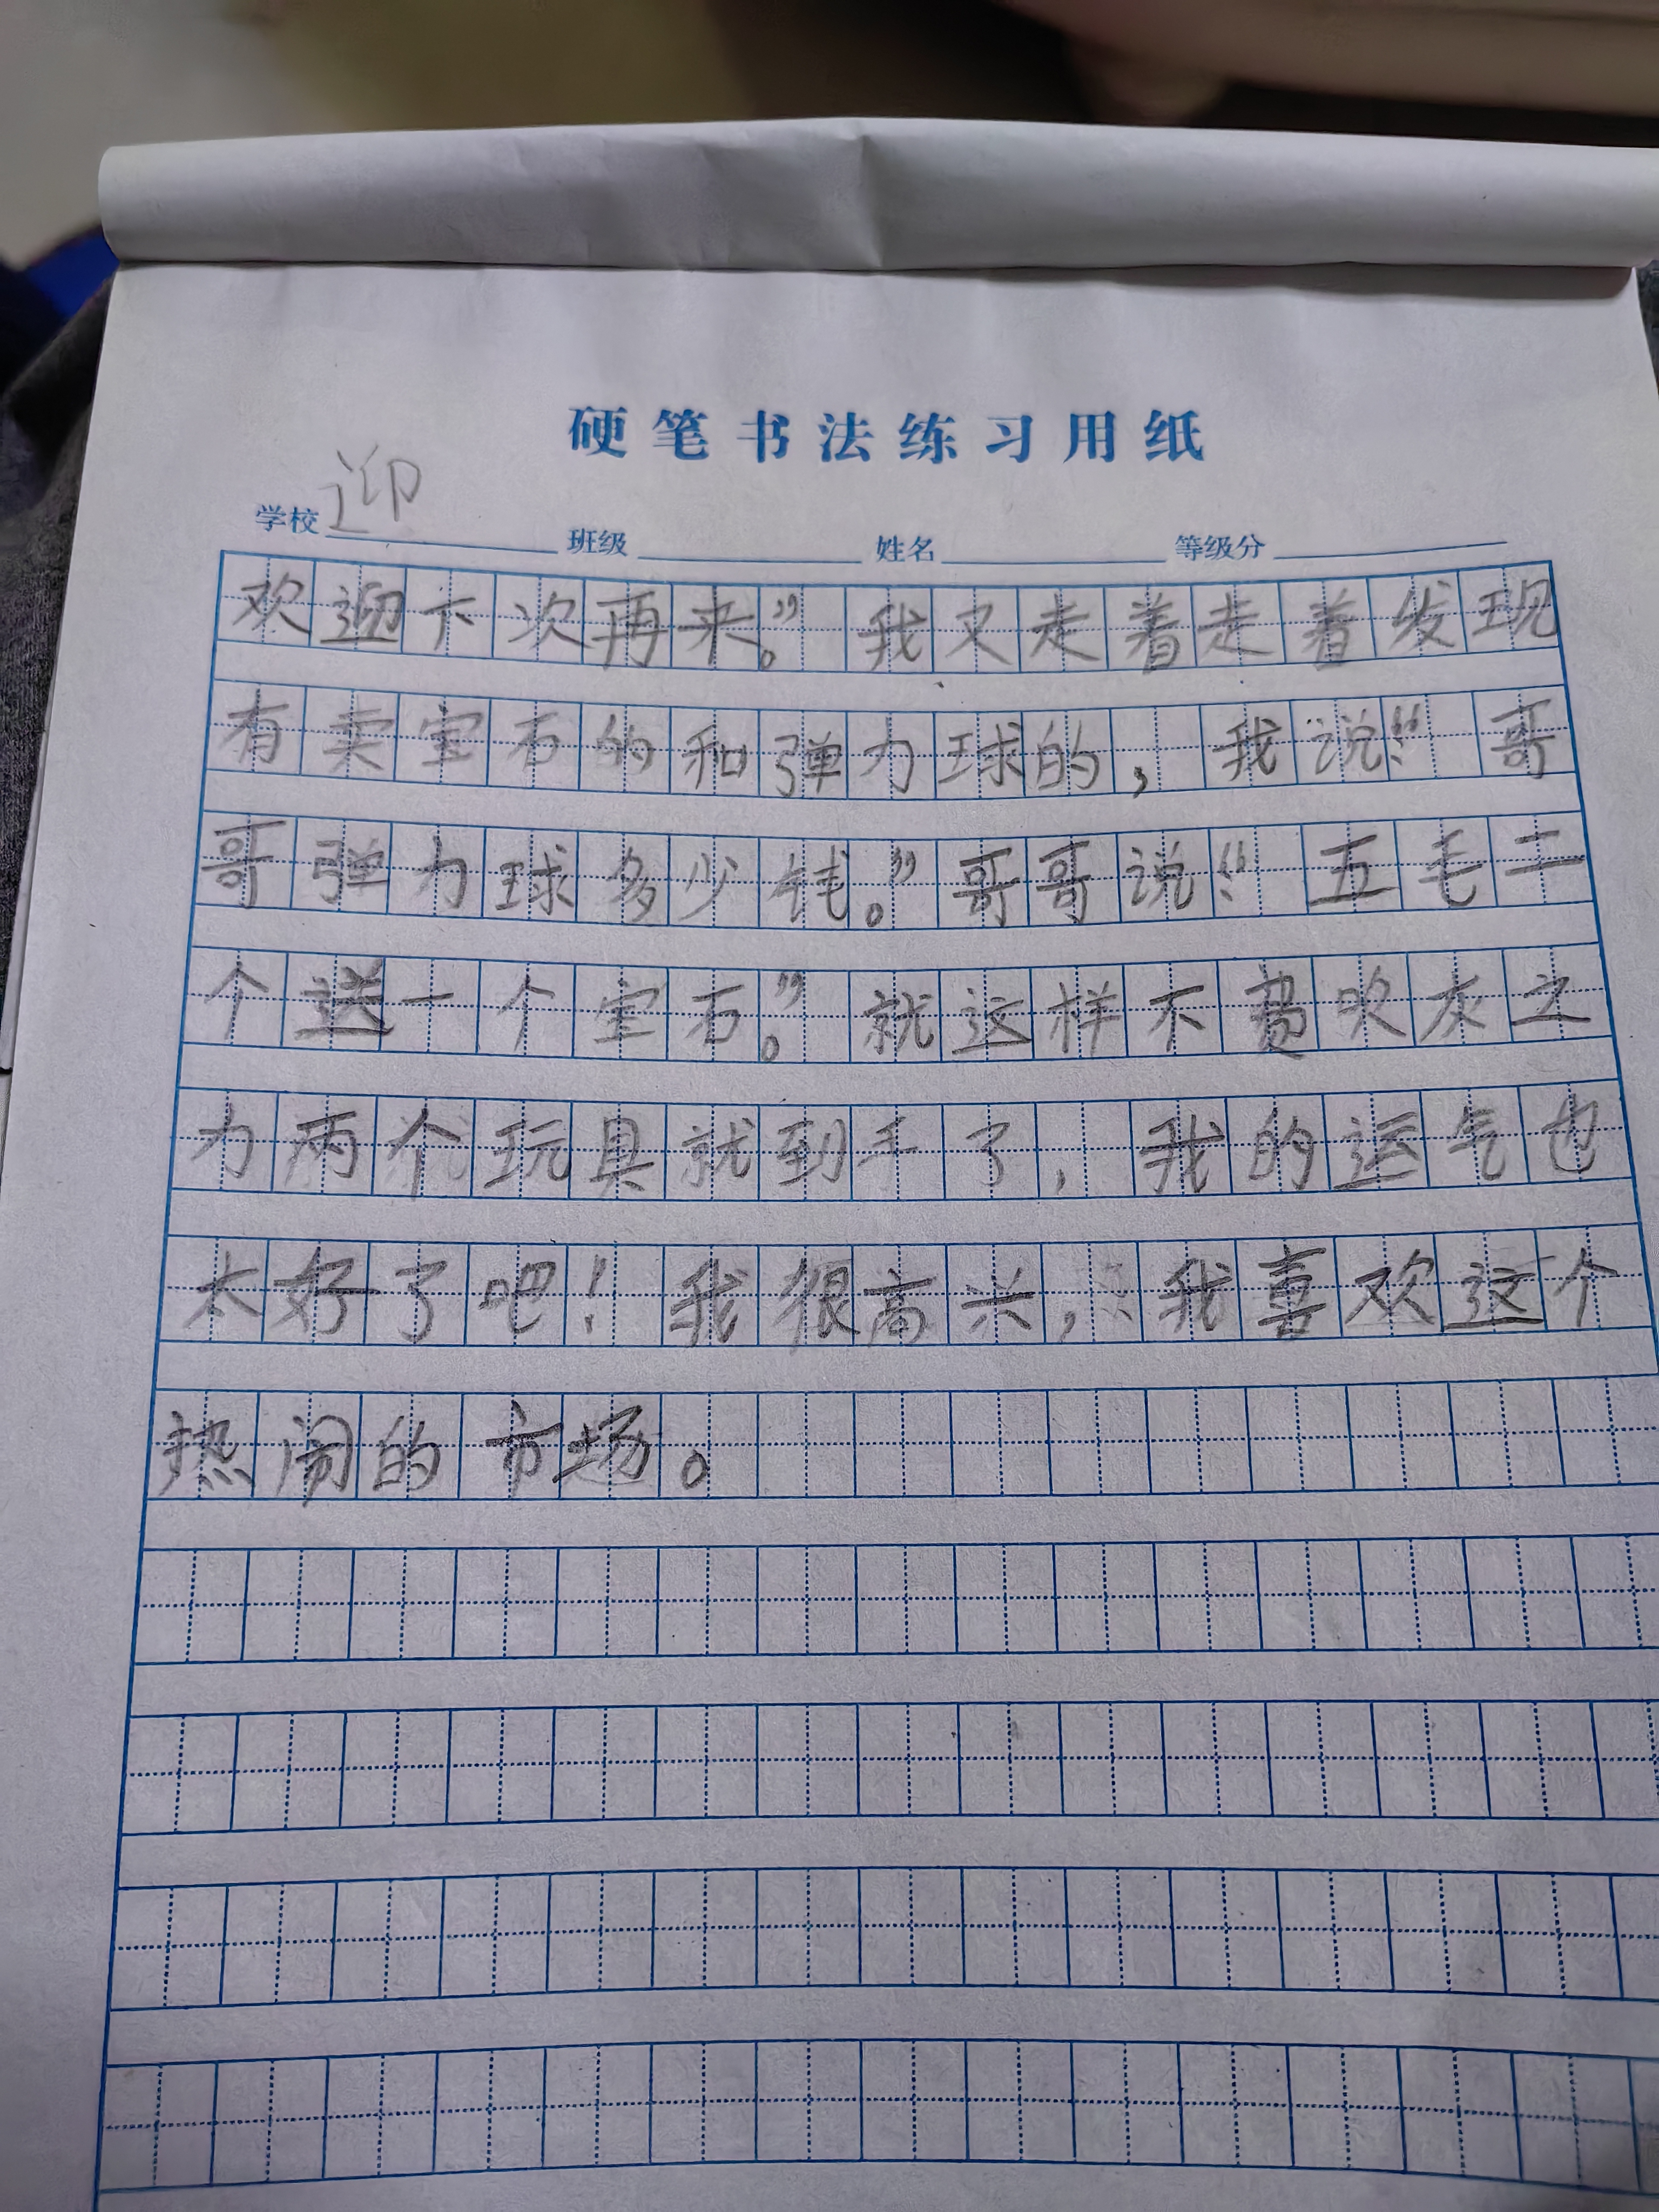 硬笔书法练习用纸
学校 迎 班级 姓名 等级分
欢迎下次再来。”我又走着走着发现
有卖宝石的和弹力球的，我说：“哥
哥弹力球多少钱。”哥哥说：“五毛二
个送一个宝石。”就这样不费吹灰之
力两个玩具就到手了，我的运气也
太好了吧！我很高兴，我喜欢这个
热闹的市场。